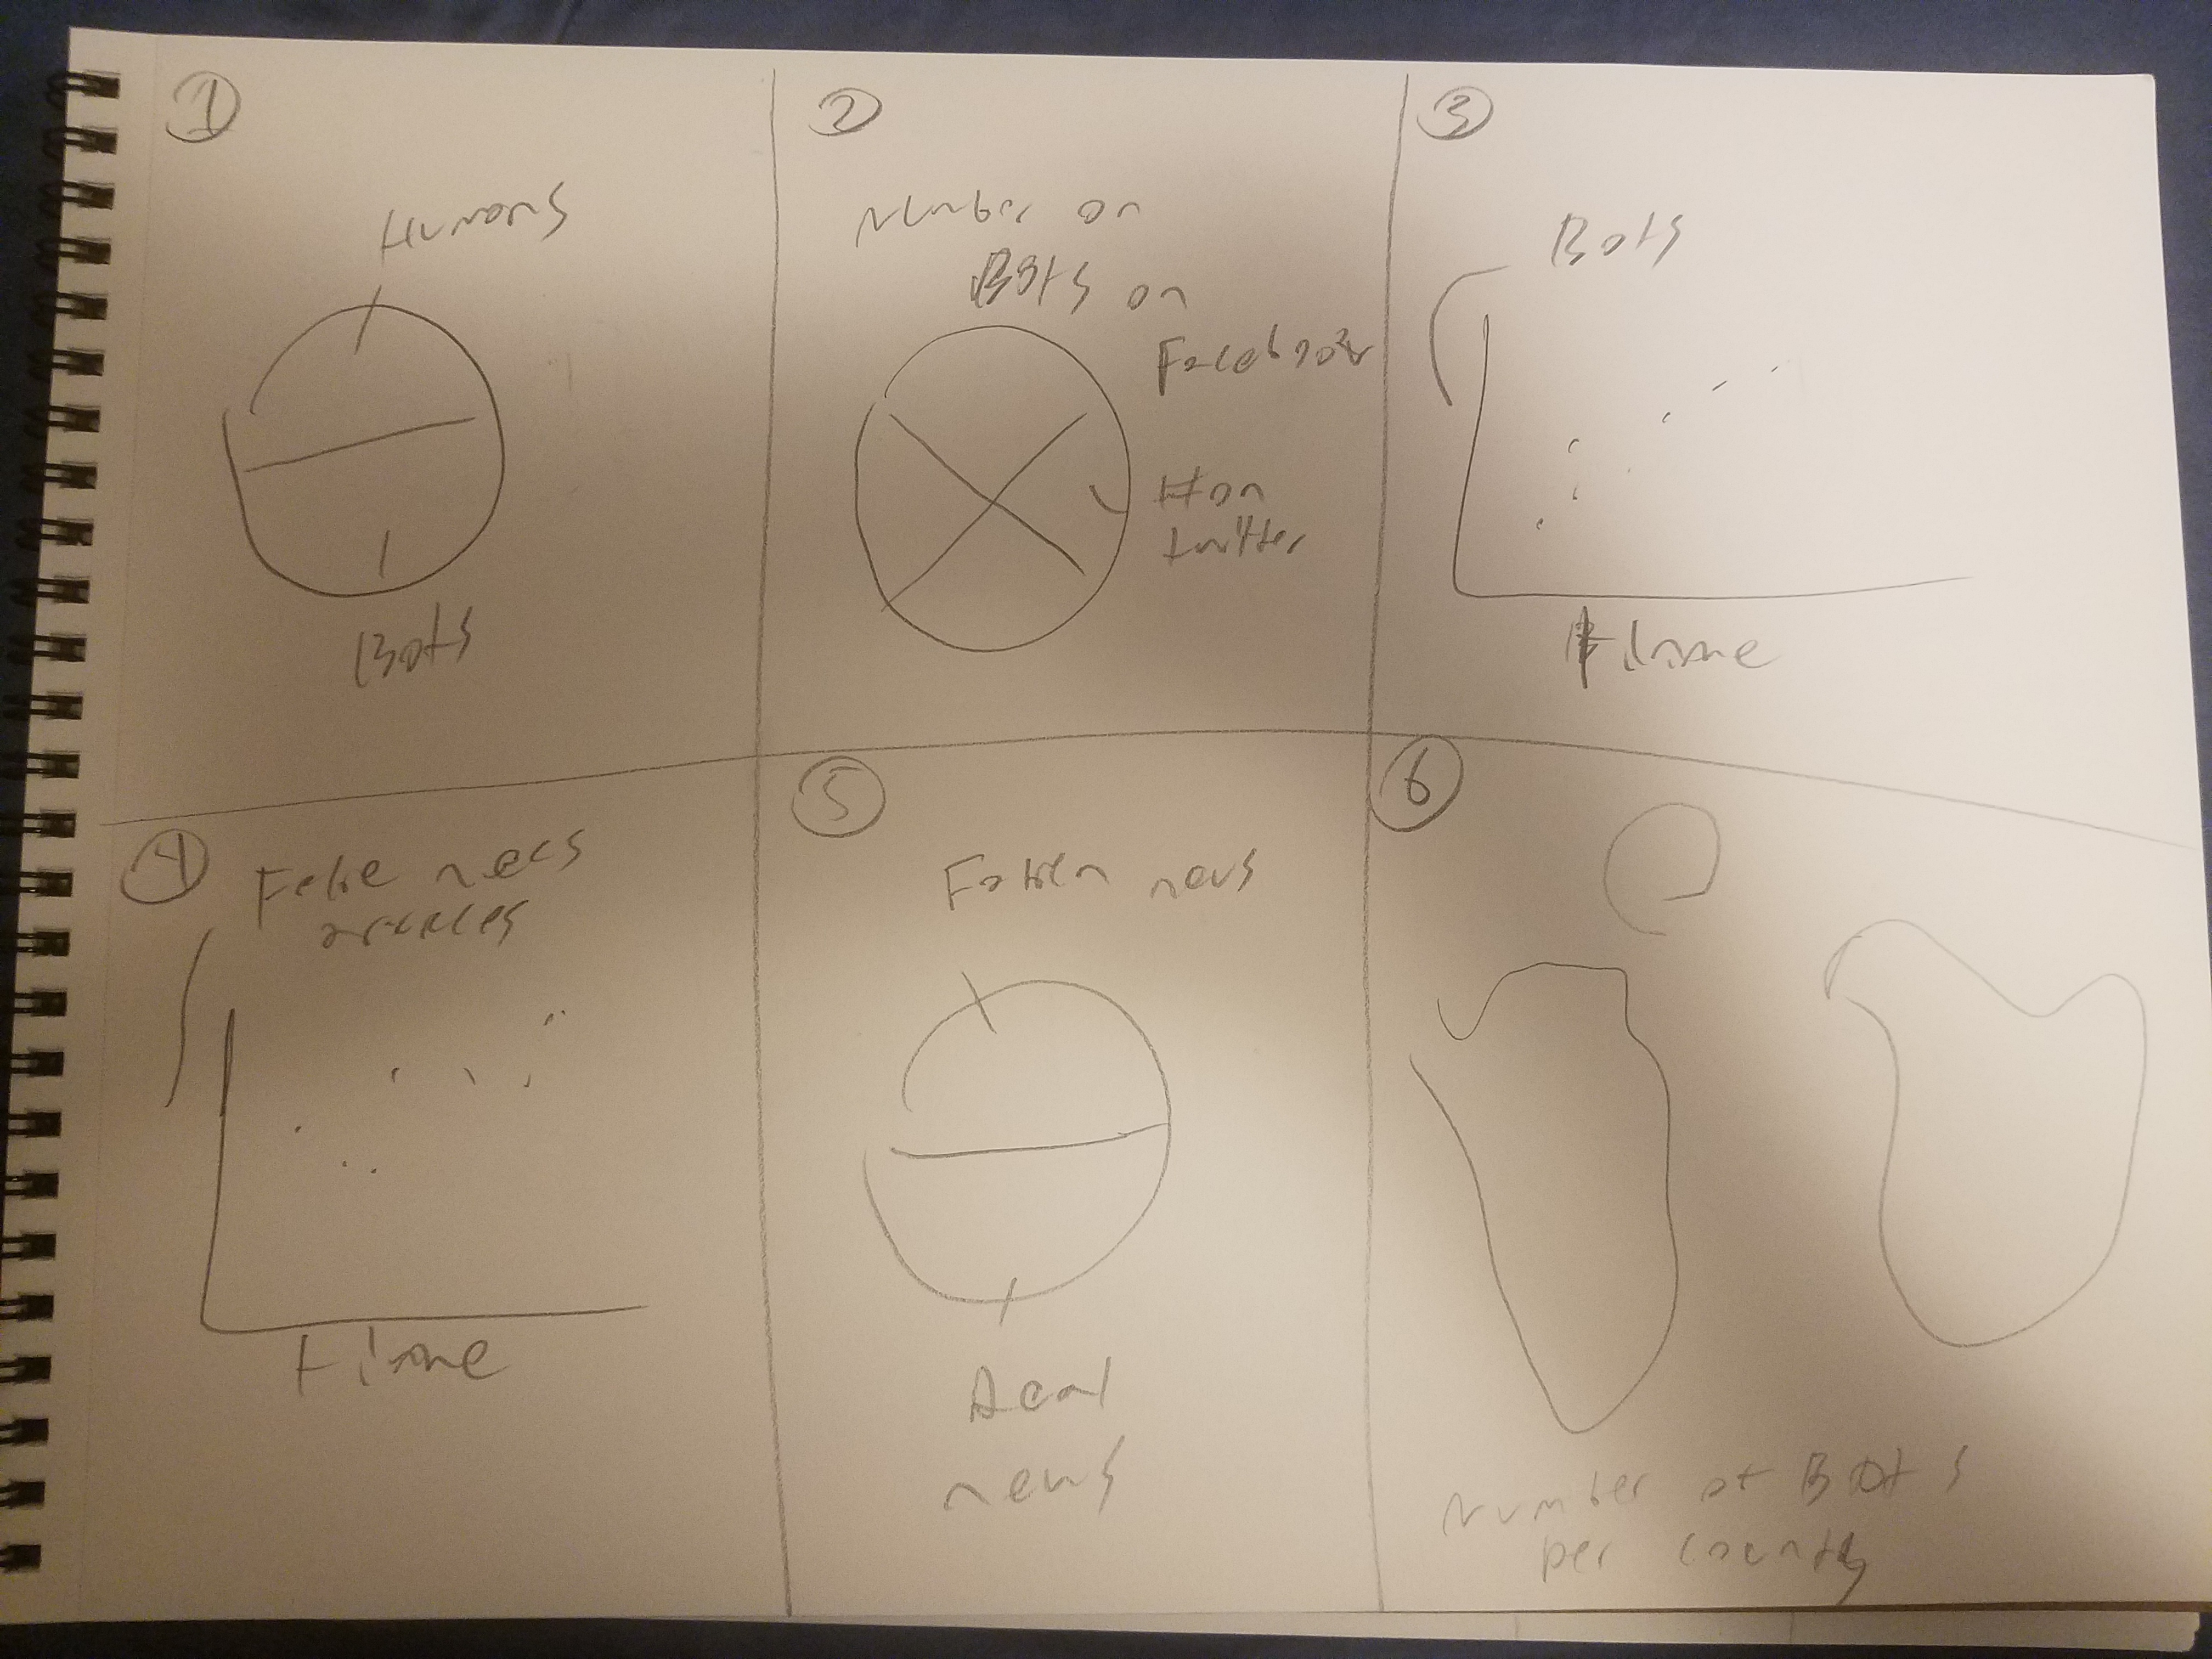 1
Humans
Bots
2
Number on
Bots on
Facebook
# on
twitter
3
Bots
time
4
Fake news
5
news
Real
news
6
Number of Bots
per county